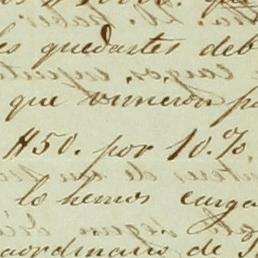 les quedastes deb
que vinieron pa
$50. por 10.%
lo hemos carga
raordinario de